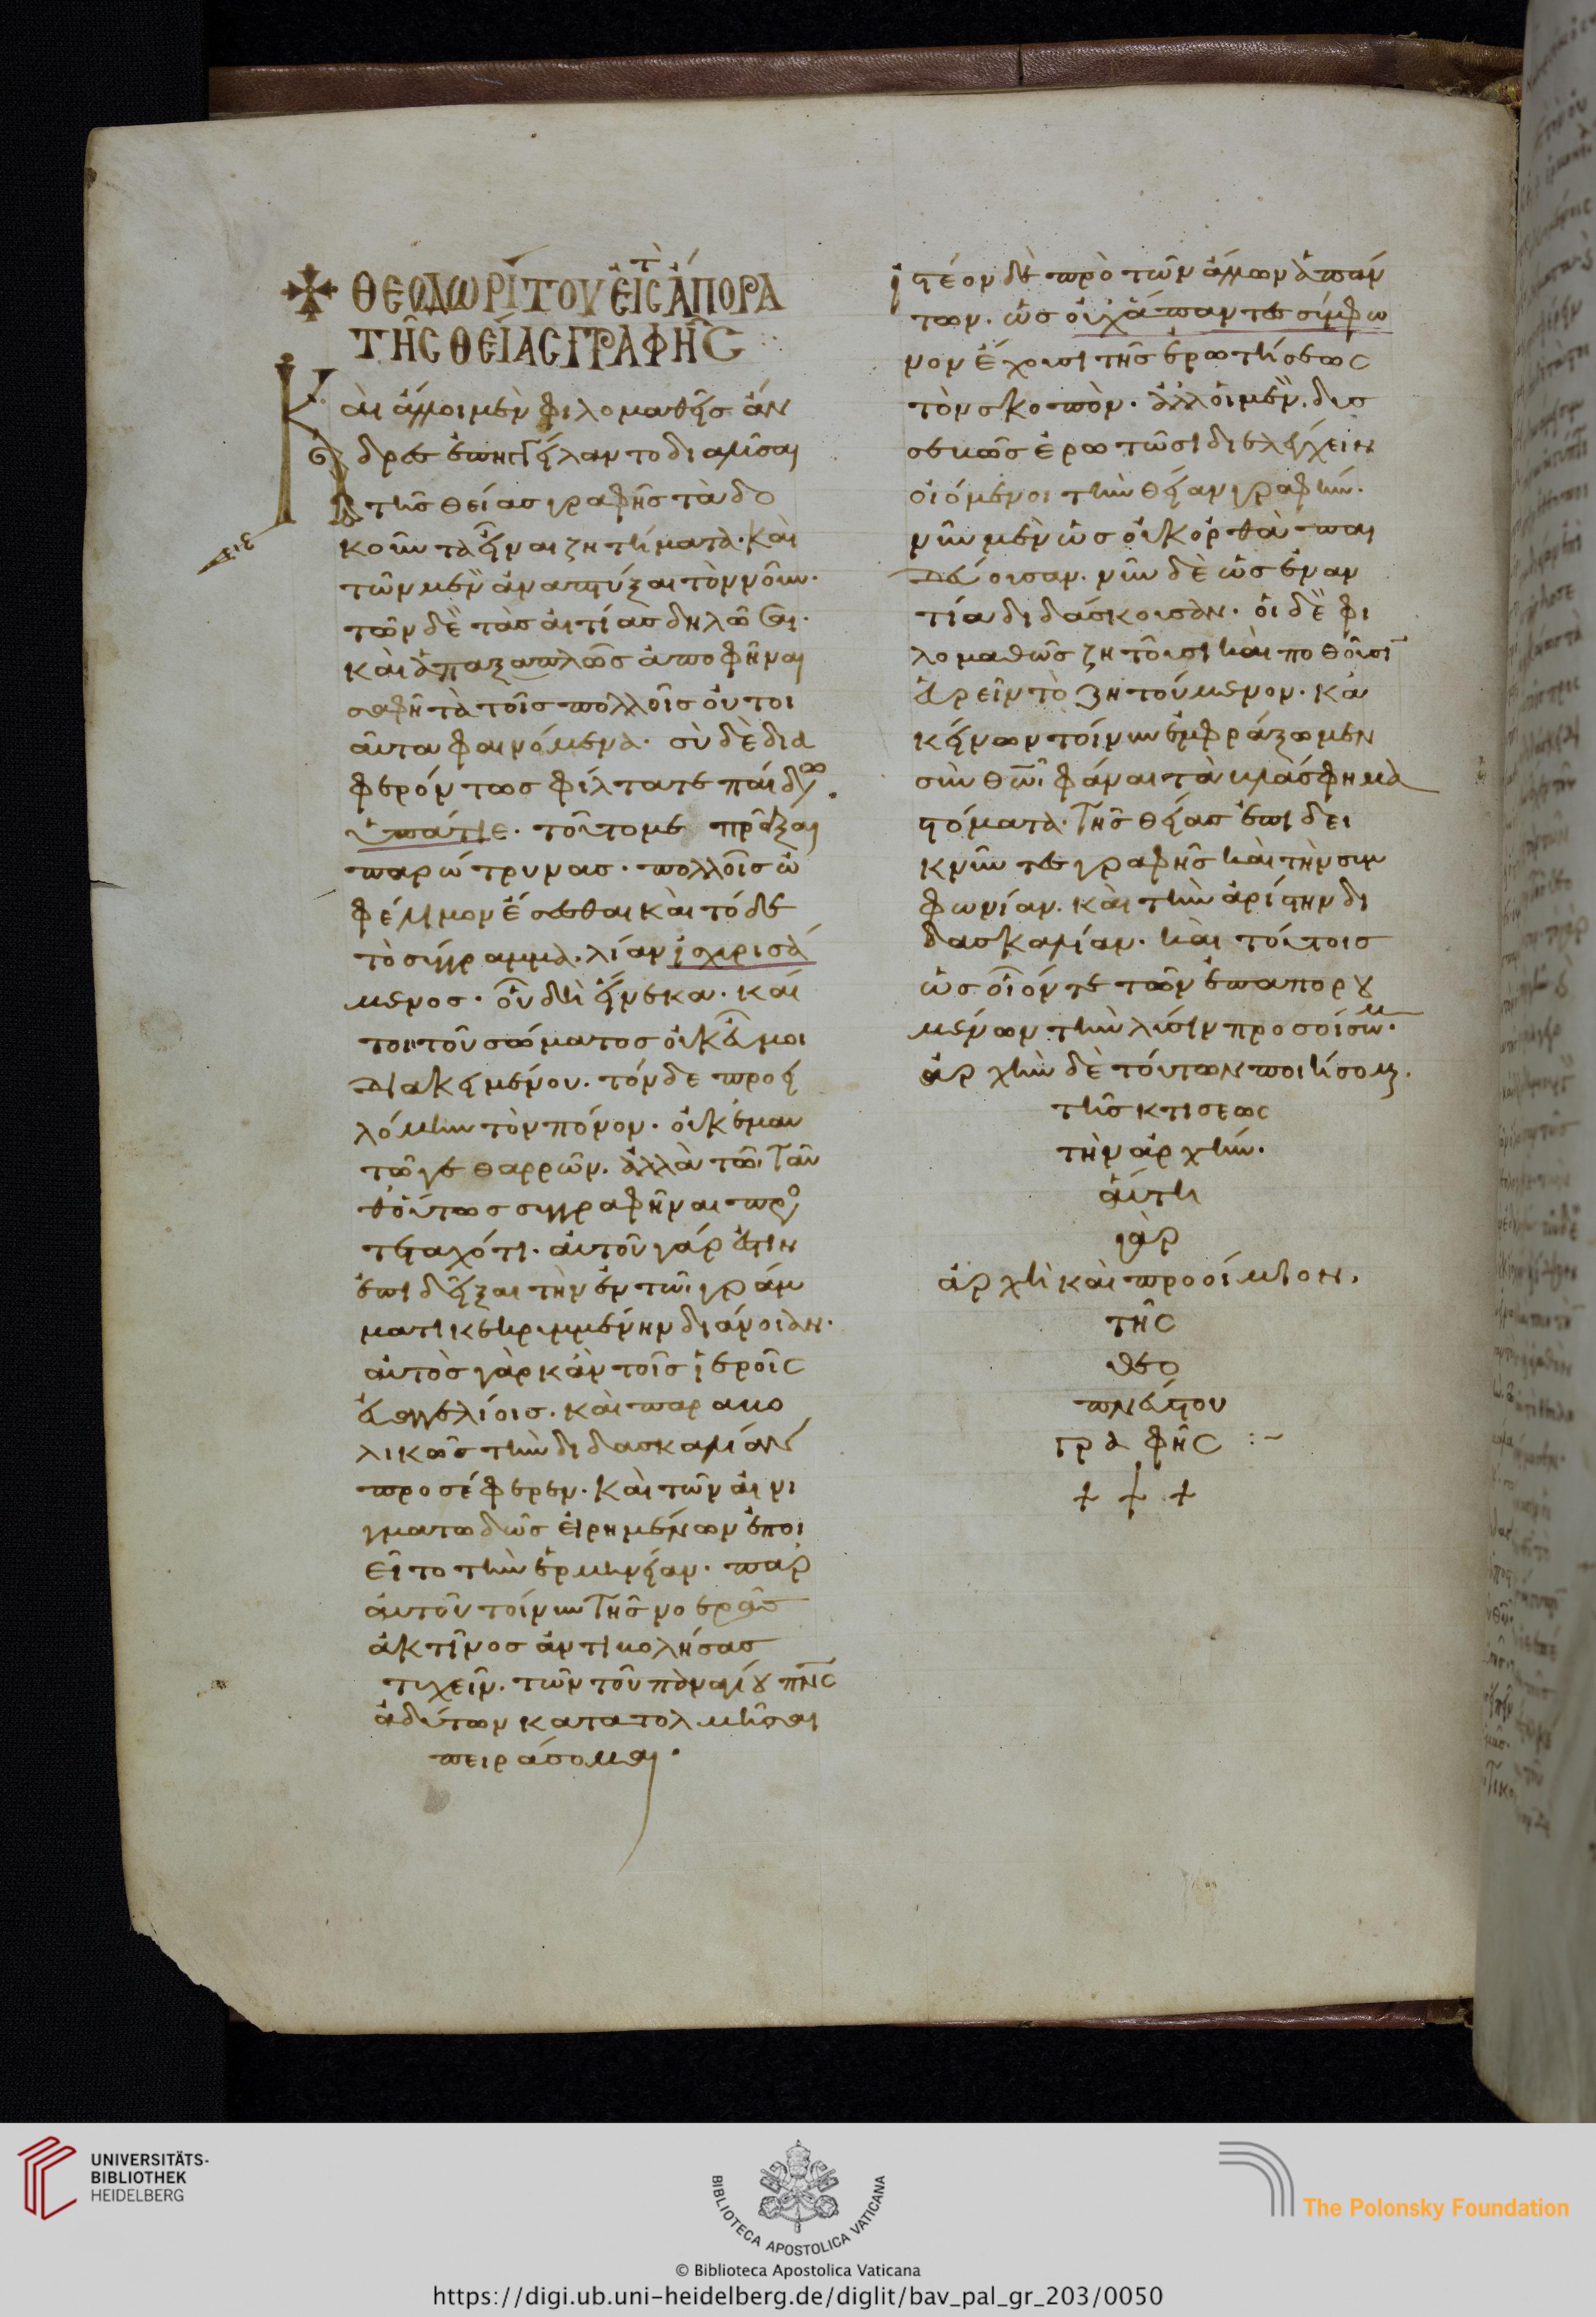 ΘΕΟΔΩΡΙΤΟΥ ΕΙΣ ΤᾺ ἌΠΟΡΑ
ΤΗ͂Σ ΘΕΊΑΣ ΓΡΑΦΗ͂Σ
Καὶ ἄλλοι μὲν φιλομαθεῖς ἄν
δρες ἐπηγγείλαντο διαλῦσαι
τῆς θείας γραφῆς τὰ δο
κοῦντα εἶναι ζητήματα. καὶ
τῶν μὲν ἀναπτύξαι τὸν νοῦν.
τῶν δὲ τὰς αἰτίας δηλῶσαι.
καὶ ἁπαξαπλῶς ἀποφῆναι
σαφῆ τὰ τοῖς πολλοῖς οὐ τοι
αῦτα φαινόμενα. σὺ δὲ δια
φερόντως φίλτατε παίδων
ὑπάτιε. τοῦτο με πρᾶξαι
παρώτρυνας. πολλοῖς ὠ
φέλιμον ἔσεσθαι καὶ τόδε
τὸ σύγγραμμα. λίαν ἰσχυρισά
μενος. οὗ δὴ εἵνεκα. καί
τοι τοῦ σώματος οὐκ εὖ μοι
διακειμένου. τόνδε προεί
λόμην τὸν πόνον. οὐκ ἐμαυ
τῷ γε θαρρῶν. ἀλλὰ τῷ ταῦ
θ' οὕτως συγγραφῆναι προ
στεταχότι. αὐτοῦ γάρ ἐστιν
ἐπιδεῖξαι τὴν ἐν τῶι γράμ
ματι κεκρυμμένην διάνοιαν.
αὐτὸς γὰρ κἀν τοῖς ἱεροῖς
εὐαγγελίοις. καὶ παραβο
λικῶς τὴν διδασκαλίαν
προσέφερεν. καὶ τῶν αἰνι
γματωδῶς εἰρημένων ἐποι
εῖτο τὴν ἑρμηνείαν. παρ
αὐτοῦ τοίνυν τῆς νοερᾶς
ἀκτῖνος ἀντιβολήσας
τυχεῖν. τῶν τοῦ παναγίου πνς
ἀδύτων κατατολμῆσαι
πειράσομαι.
ἰστέον δὲ πρὸ τῶν ἄλλων ἁπάν
των. ὡς οὐχ ἅπαντες σύμφω
νον ἔχουσι τῆς ἐρωτήσεως
τὸν σκοπόν. ἀλλ' οἱ μὲν. δυσ
σεβῶς ἐρωτῶσι διελέγχειν
οἰόμενοι τὴν θείαν γραφήν.
νῦν μὲν ὡς οὐκ ὀρθὰ παι
δεύουσαν. νῦν δὲ ὡς ἐναν
τία διδάσκουσαν. οἱ δὲ φι
λομαθῶς ζητοῦσι καὶ ποθοῦσι
εὑρεῖν τὸ ζητούμενον. κἀ
κείνων τοίνυν ἐμφράξωμεν
σὺν θω φάναι τὰ βλάσφημα
στόματα. τῆς θείας ἐπιδει
κνύντες γραφῆς καὶ τὴν συμ
φωνίαν. καὶ τὴν ἀρίστην δι
δασκαλίαν. καὶ τούτοις
ὡς οἷόν τε τῶν ἐπαπορου
μένων τὴν λύσιν προσοίσωμ.
ἀρχὴν δὲ τούτων ποιήσομαι.
τῆς κτίσεως
τὴν ἀρχήν.
αὕτη
γὰρ
ἀρχὴ καὶ προοίμιον.
τῆς
θεο
πνεύστου
γραφῆς :~
+ + +
UNIVERSITÄTS-
BIBLIOTHEK
HEIDELBERG
BIBLIOTECA APOSTOLICA VATICANA
The Polonsky Foundation
© Biblioteca Apostolica Vaticana
https://digi.ub.uni-heidelberg.de/diglit/bav_pal_gr_203/0050